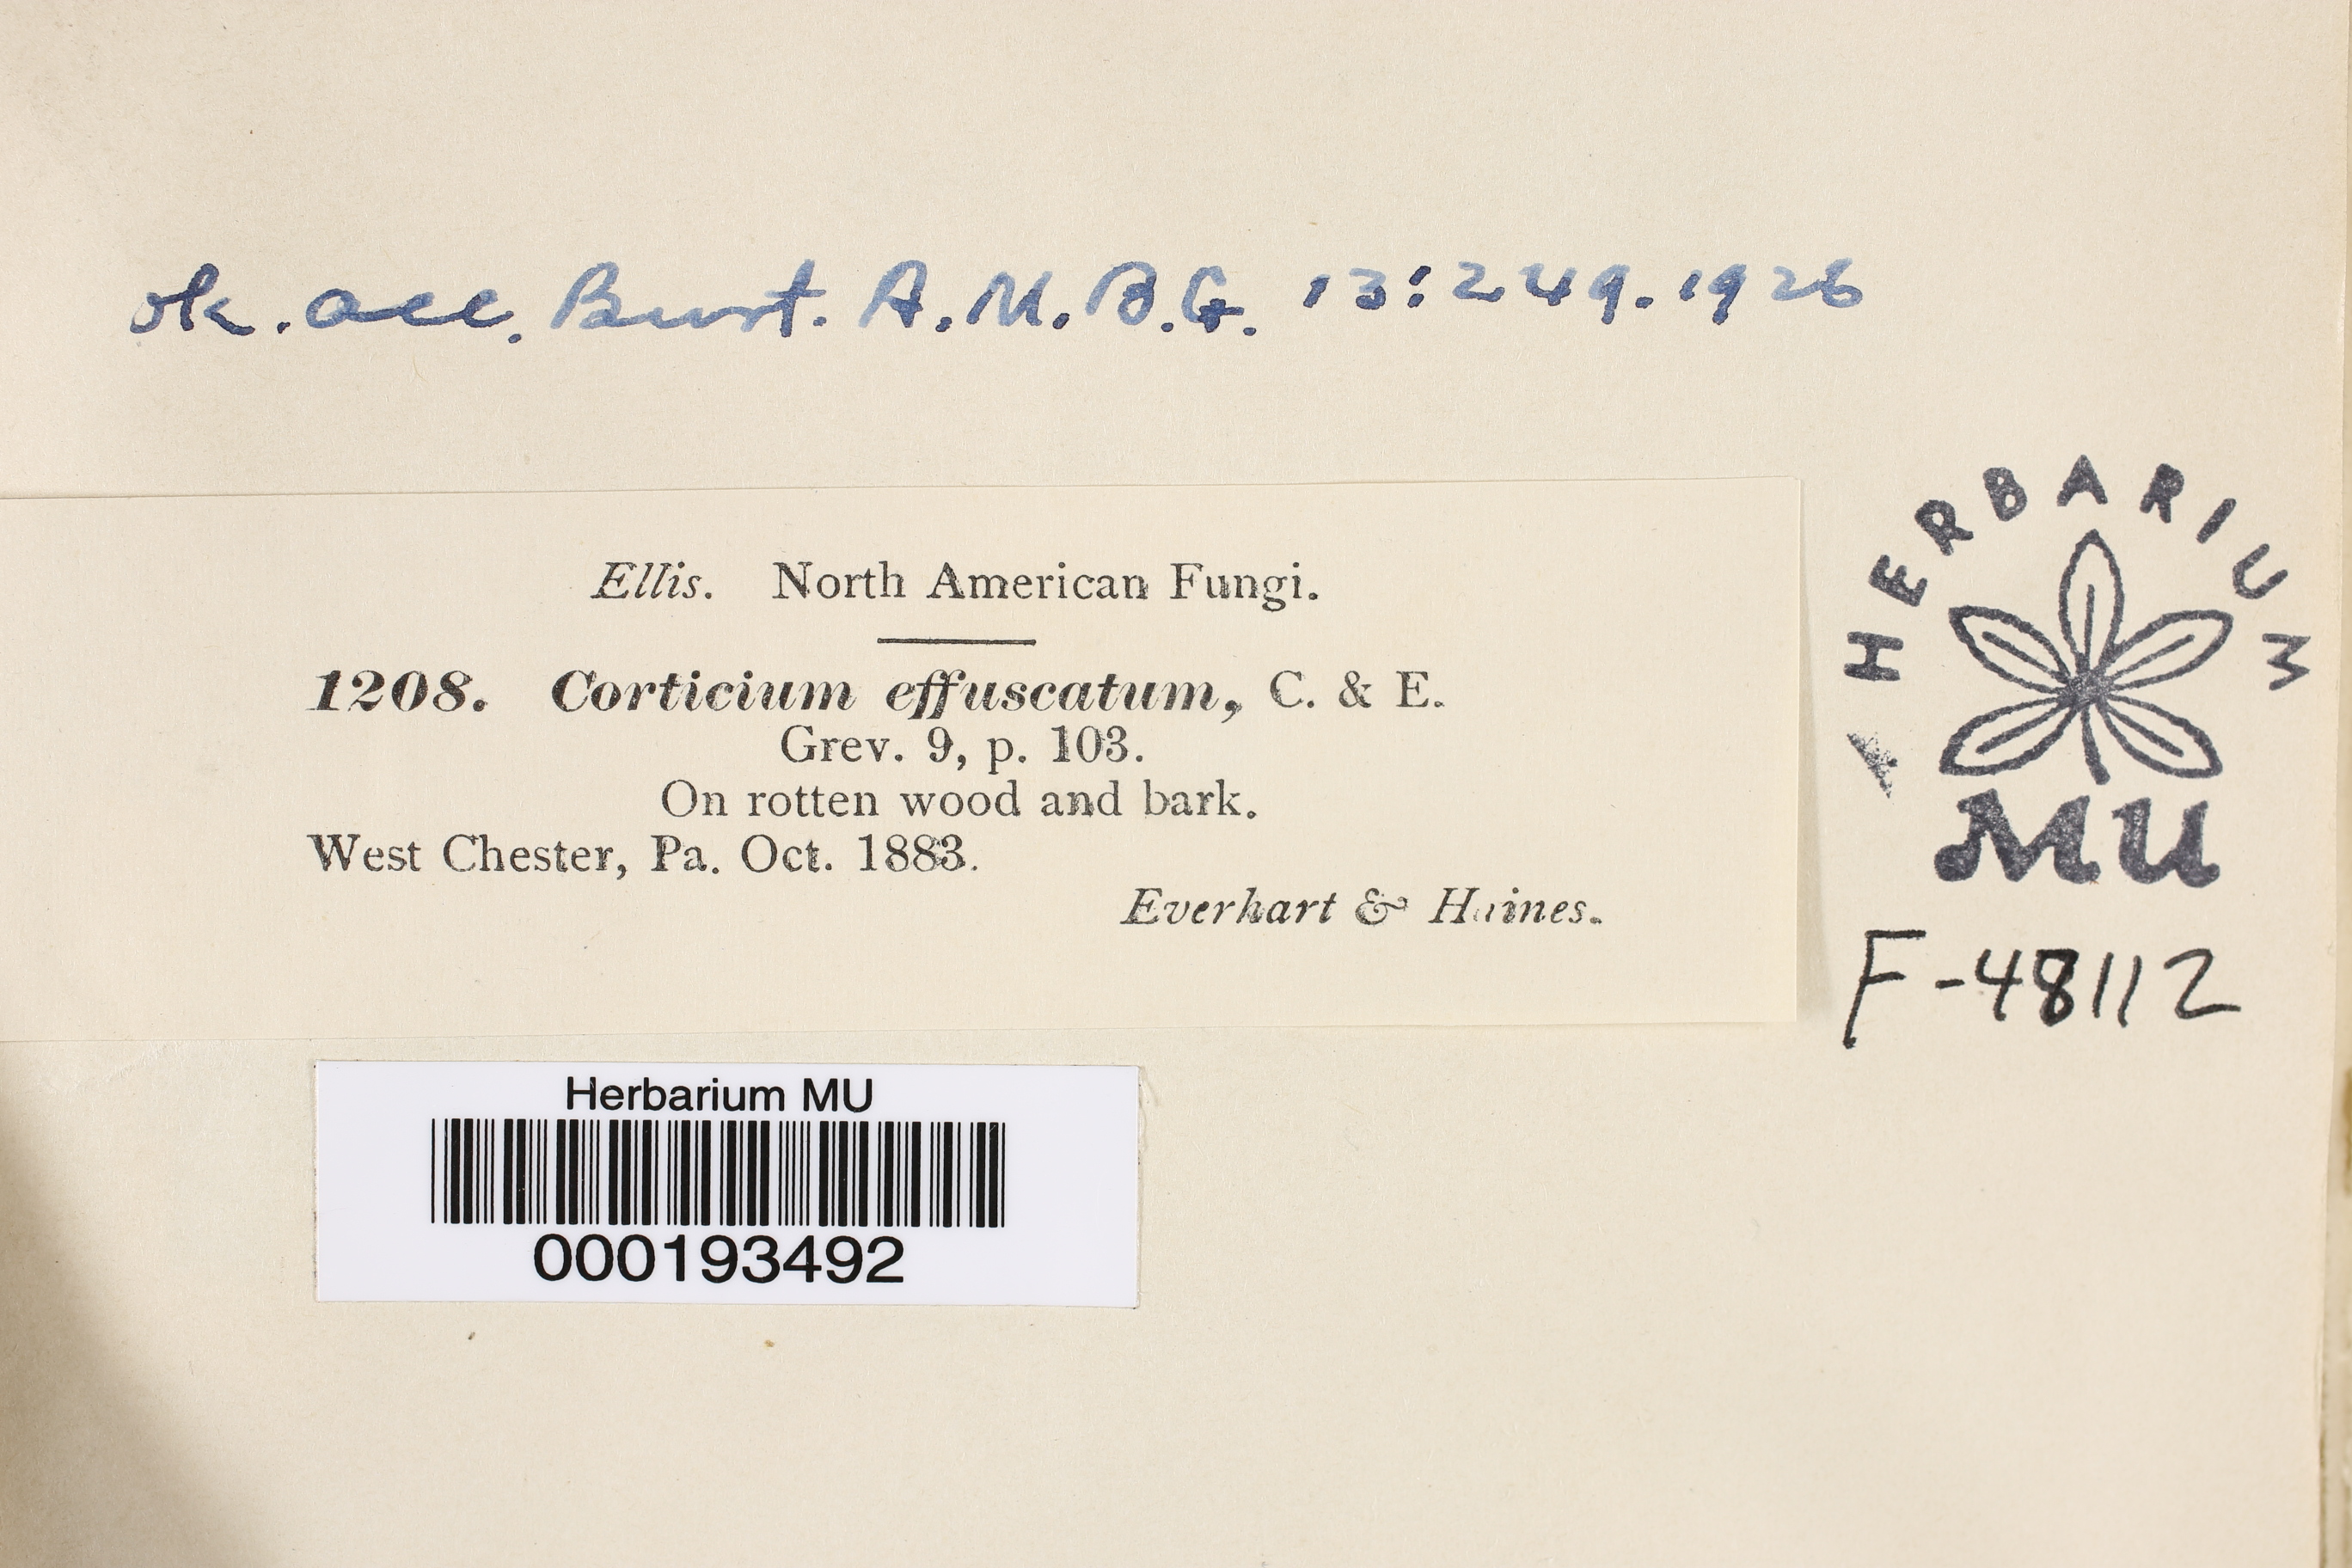 ok. acc. Burt. A.M.B.G. 13:249.1926
Ellis. North American Fungi.
1208. Corticium effuscatum, C. & E.
Grev. 9, p. 103.
On rotten wood and bark.
West Chester, Pa. Oct. 1883.
Everhart & Haines.
HERBARIUM
MU
F-48112
Herbarium MU
000193492